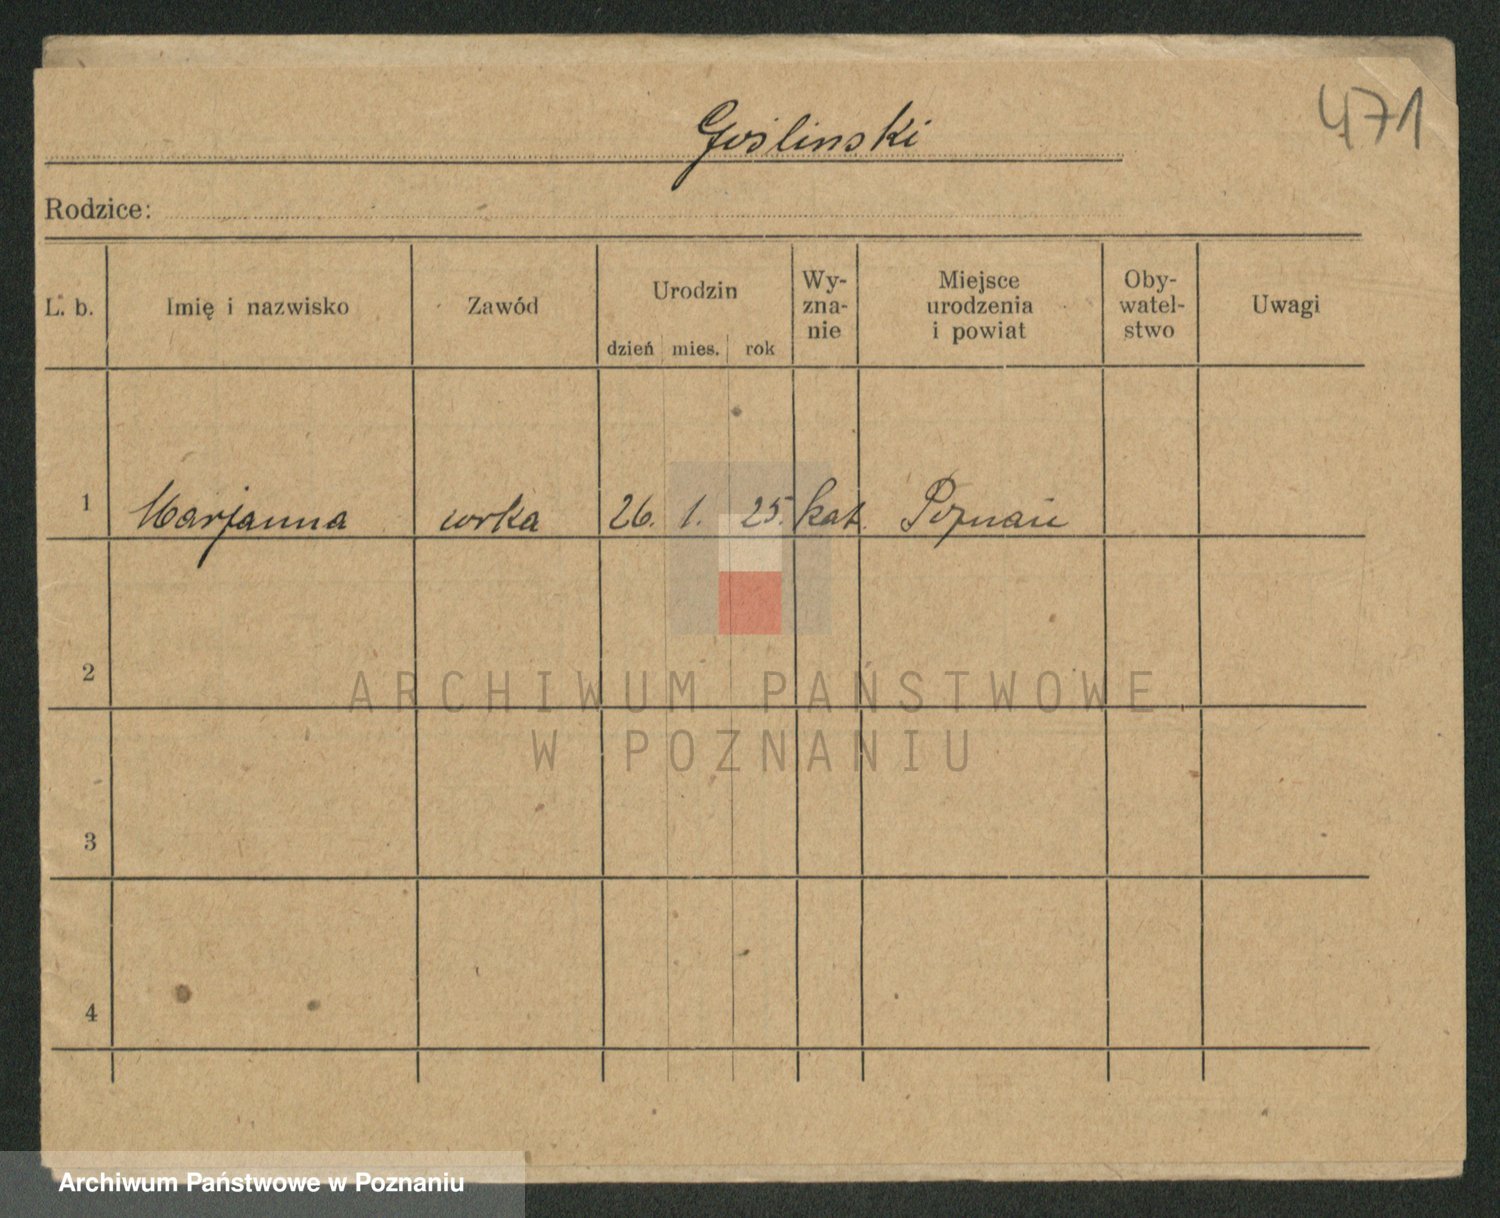 471
Goślinski
Rodzice:
L. b.
Imię i nazwisko
Zawód
Urodzin
dzień mies. rok
Wy-
zna-
nie
Miejsce
urodzenia
i powiat
Oby-
watel-
stwo
Uwagi
1 Marjanna corka 26. 1. 25. kat. Poznań
2
3
4
ARCHIWUM PAŃSTWOWE
W POZNANIU
Archiwum Państwowe w Poznaniu